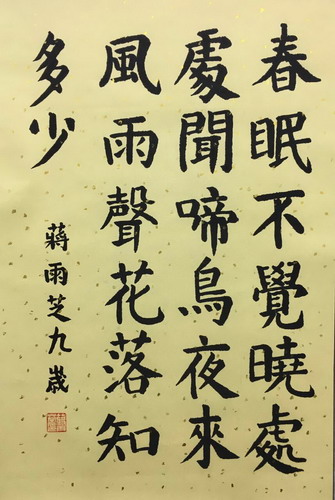 春眠不覺曉處
處聞啼鳥夜來
風雨聲花落知
多少
蔣雨芝九歲